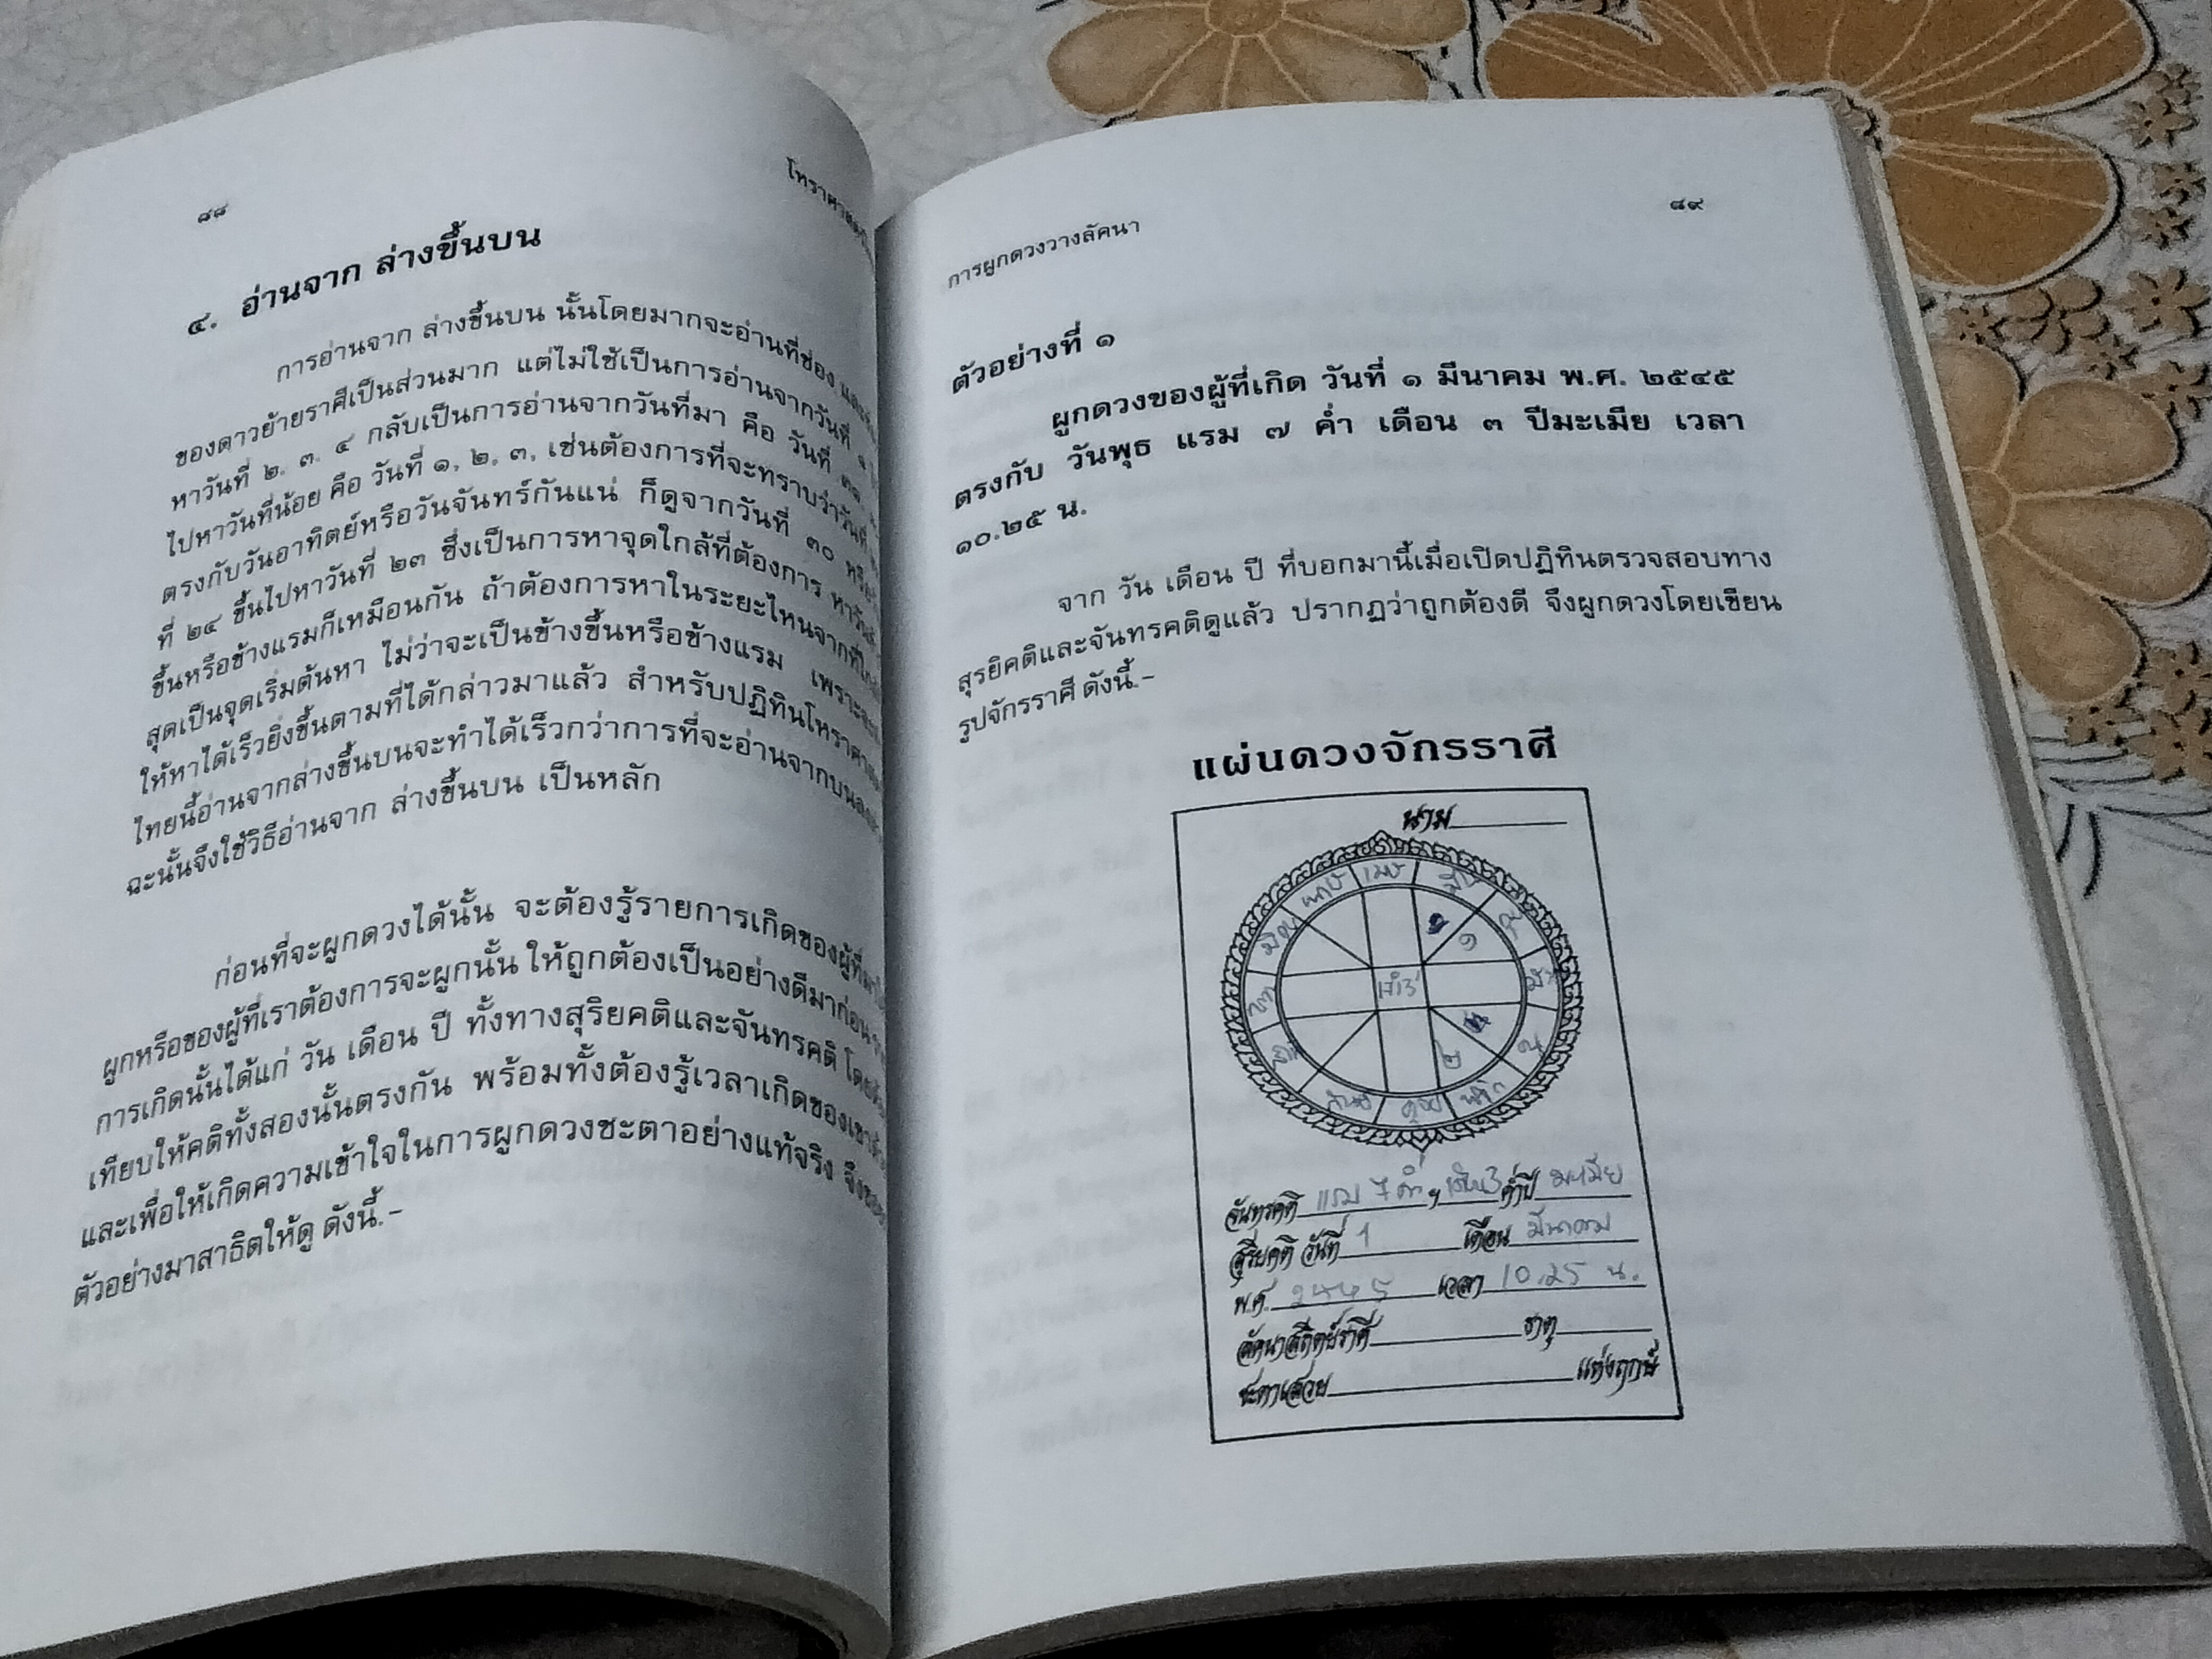 ๘๘
๔. อ่านจาก ล่างขึ้นบน
การอ่านจาก ล่างขึ้นบน นั้นโดยมากจะอ่านที่ช่อง
ของดาวย้ายราศีเป็นส่วนมาก แต่ไม่ใช้เป็นการอ่านจากวันที่ ๑
หาวันที่ ๒. ๓. ๔ กลับเป็นการอ่านจากวันที่มา คือ วันที่
ไปหาวันที่น้อย คือ วันที่ ๑, ๒, ๓, เช่นต้องการที่จะทราบว่าวันที่
ตรงกับวันอาทิตย์หรือวันจันทร์กันแน่ ก็ดูจากวันที่ ๓๐
ที่ ๒๔ ขึ้นไปหาวันที่ ๒๓ ซึ่งเป็นการหาจุดใกล้ที่ต้องการ
ขึ้นหรือข้างแรมก็เหมือนกัน ถ้าต้องการหาในระยะไหนจากที่
สุดเป็นจุดเริ่มต้นหา ไม่ว่าจะเป็นข้างขึ้นหรือข้างแรม เพราะ
ให้หาได้เร็วยิ่งขึ้นตามที่ได้กล่าวมาแล้ว สำหรับปฏิทินโหราศาสตร์
ไทยนี้อ่านจากล่างขึ้นบนจะทำได้เร็วกว่าการที่จะอ่านจากบน
ฉะนั้นจึงใช้วิธีอ่านจาก ล่างขึ้นบน เป็นหลัก
ก่อนที่จะผูกดวงได้นั้น จะต้องรู้รายการเกิดของผู้ที่
ผูกหรือของผู้ที่เราต้องการจะผูกนั้น ให้ถูกต้องเป็นอย่างดีมาก่อน
การเกิดนั้นได้แก่ วัน เดือน ปี ทั้งทางสุริยคติและจันทรคติ
เทียบให้คติทั้งสองนั้นตรงกัน พร้อมทั้งต้องรู้เวลาเกิดของเขา
และเพื่อให้เกิดความเข้าใจในการผูกดวงชะตาอย่างแท้จริง
ตัวอย่างมาสาธิตให้ดู ดังนี้.-
การผูกดวงวางลัคนา
๘๙
ตัวอย่างที่ ๑
ผูกดวงของผู้ที่เกิด วันที่ ๑ มีนาคม พ.ศ. ๒๕๔๕
ตรงกับ วันพุธ แรม ๗ ค่ำ เดือน ๓ ปีมะเมีย เวลา
๑๐.๒๕ น.
จาก วัน เดือน ปี ที่บอกมานี้เมื่อเปิดปฏิทินตรวจสอบทาง
สุรยิคติและจันทรคติดูแล้ว ปรากฏว่าถูกต้องดี จึงผูกดวงโดยเขียน
รูปจักรราศี ดังนี้.-
แผ่นดวงจักรราศี
นาม
พฤษ เมษ มีน
มิถุน ๑ กุม
๒
กันย์ ตุลย์ พิจิก
จันทรคติ แรม 7 ค่ำ ฯ เดือน 3 ค่ำปี มะเมีย
สุริยคติ วันที่ 1 เดือน มีนาคม
พ.ศ. 2545 เวลา 10.25 น.
ลัคนาสถิตย์ราศี ธาตุ
ชะตาเสวย แห่งฤกษ์